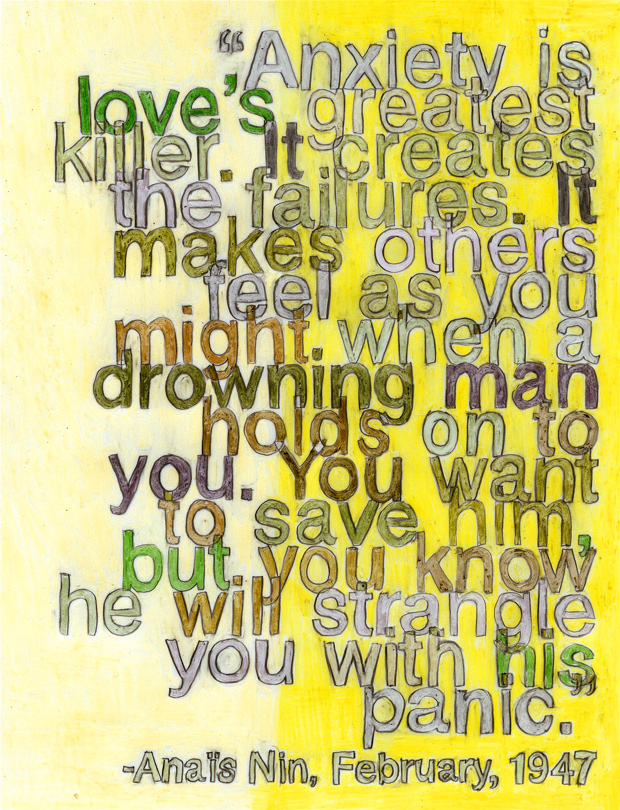 “Anxiety is
love's greatest
killer. It creates
the failures. It
makes others
feel as you
might when a
drowning man
holds on to
you. You want
to save him,
but you know
he will strangle
you with his
panic.”
-Anaïs Nin, February, 1947